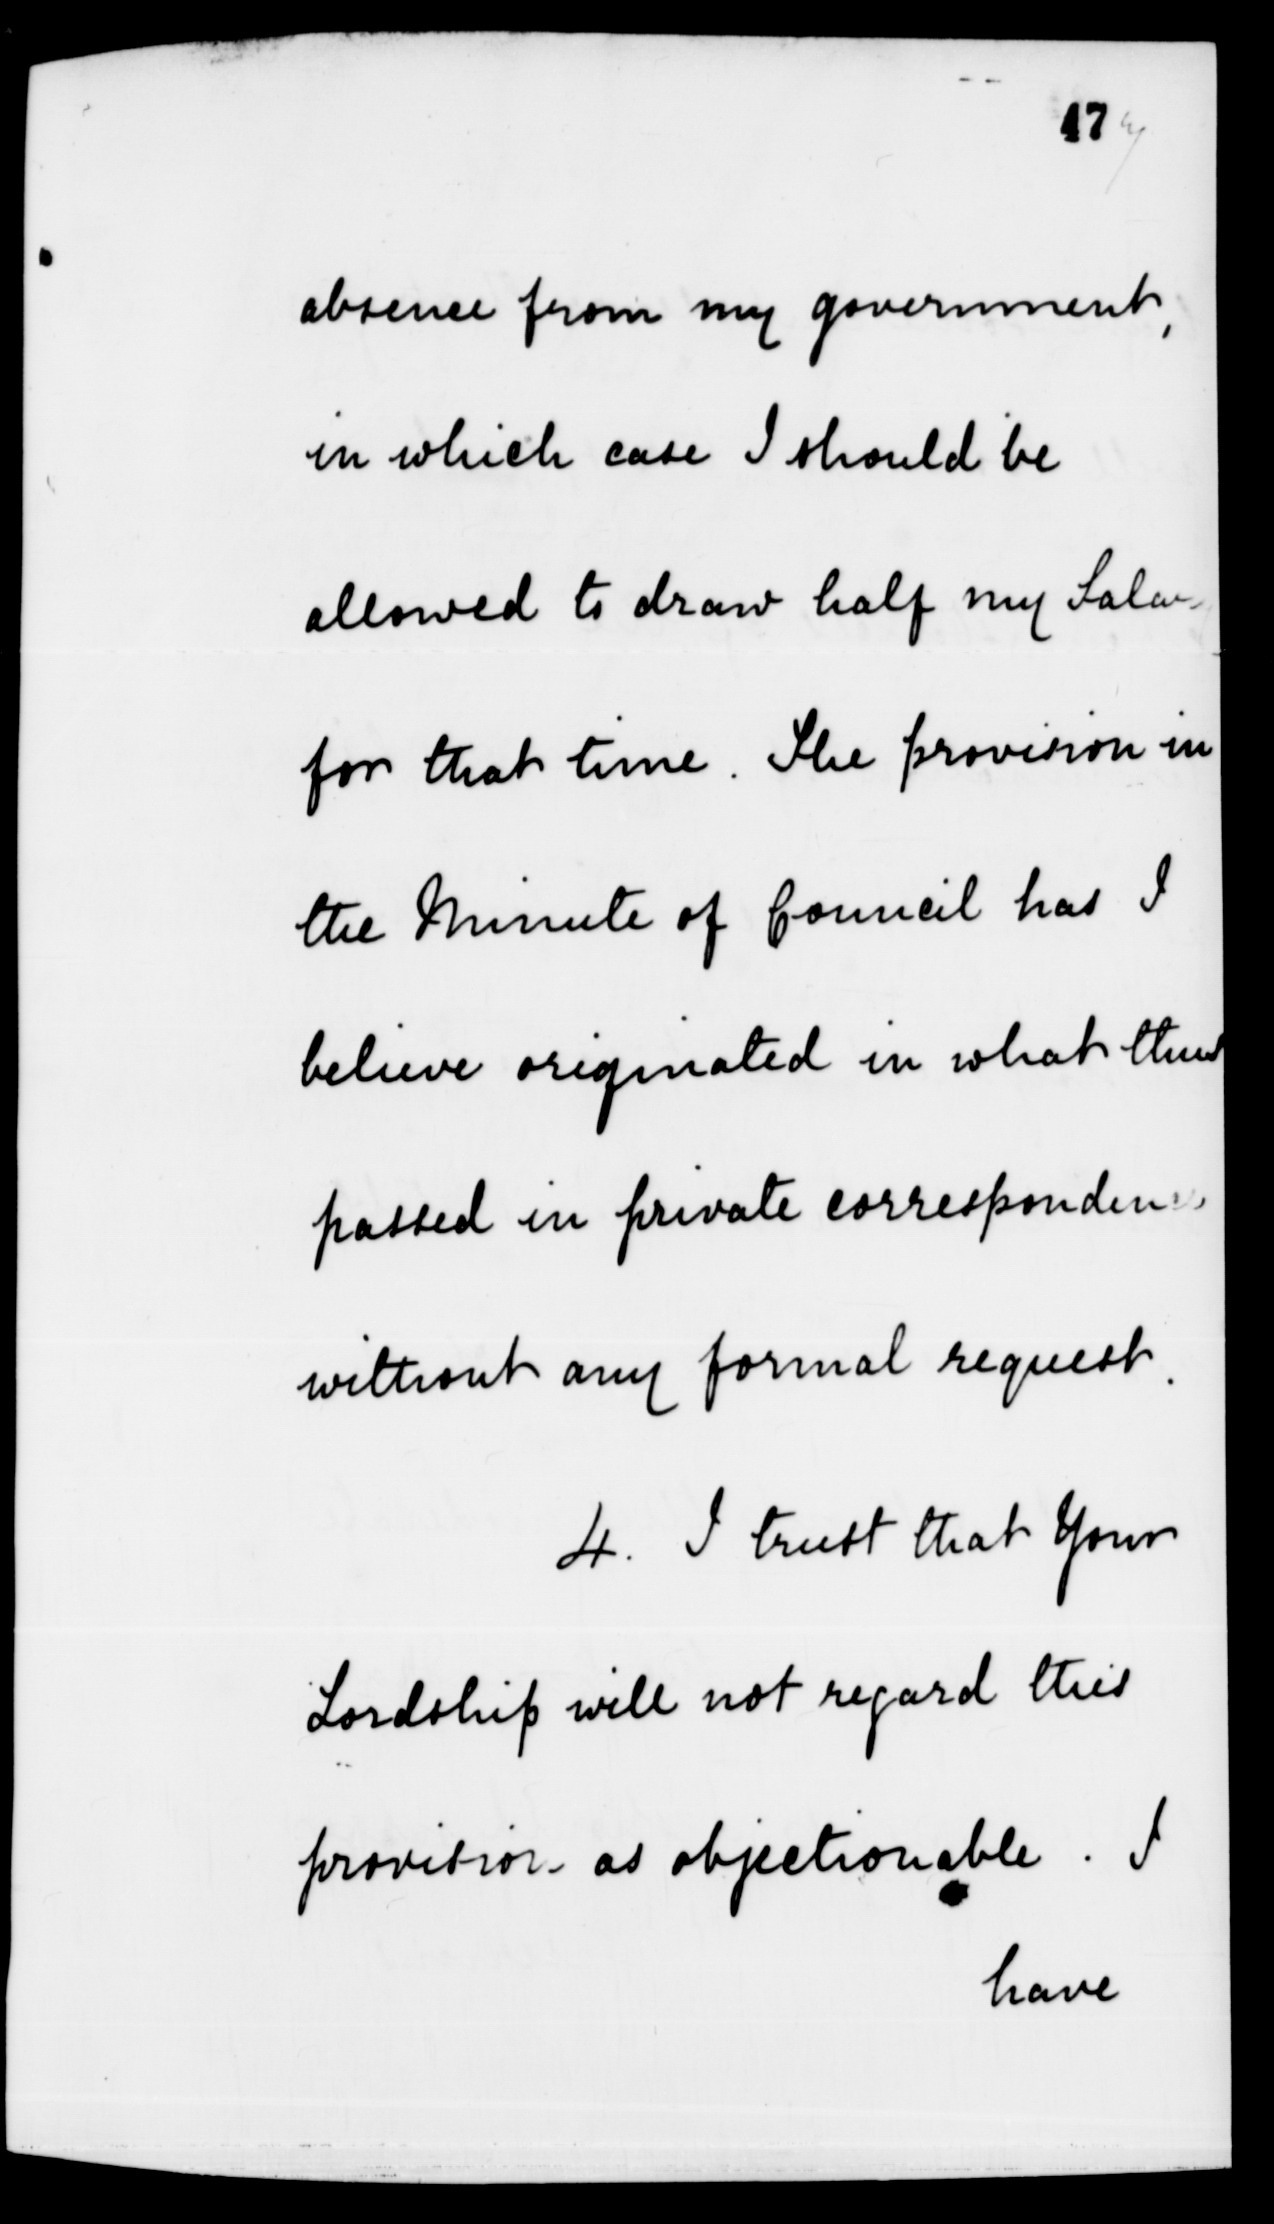 47
absence from my government,
in which case I should be
allowed to draw half my
for that time. The provision in
the Minute of Council has I
believe originated in what thus
passed in private
without any formal request.
4. I trust that Your
Lordship will not regard this
provision as objectionable. I
have